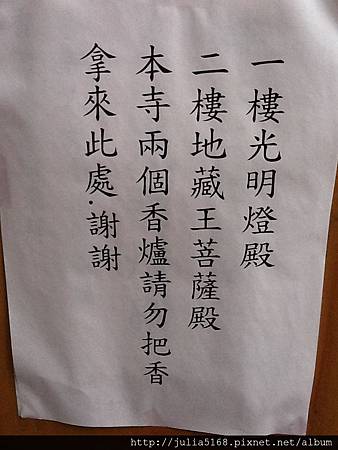 一樓光明燈殿
二樓地藏王菩薩殿
本寺兩個香爐請勿把香
拿來此處.謝謝
http://julia5168.pixnet.net/album